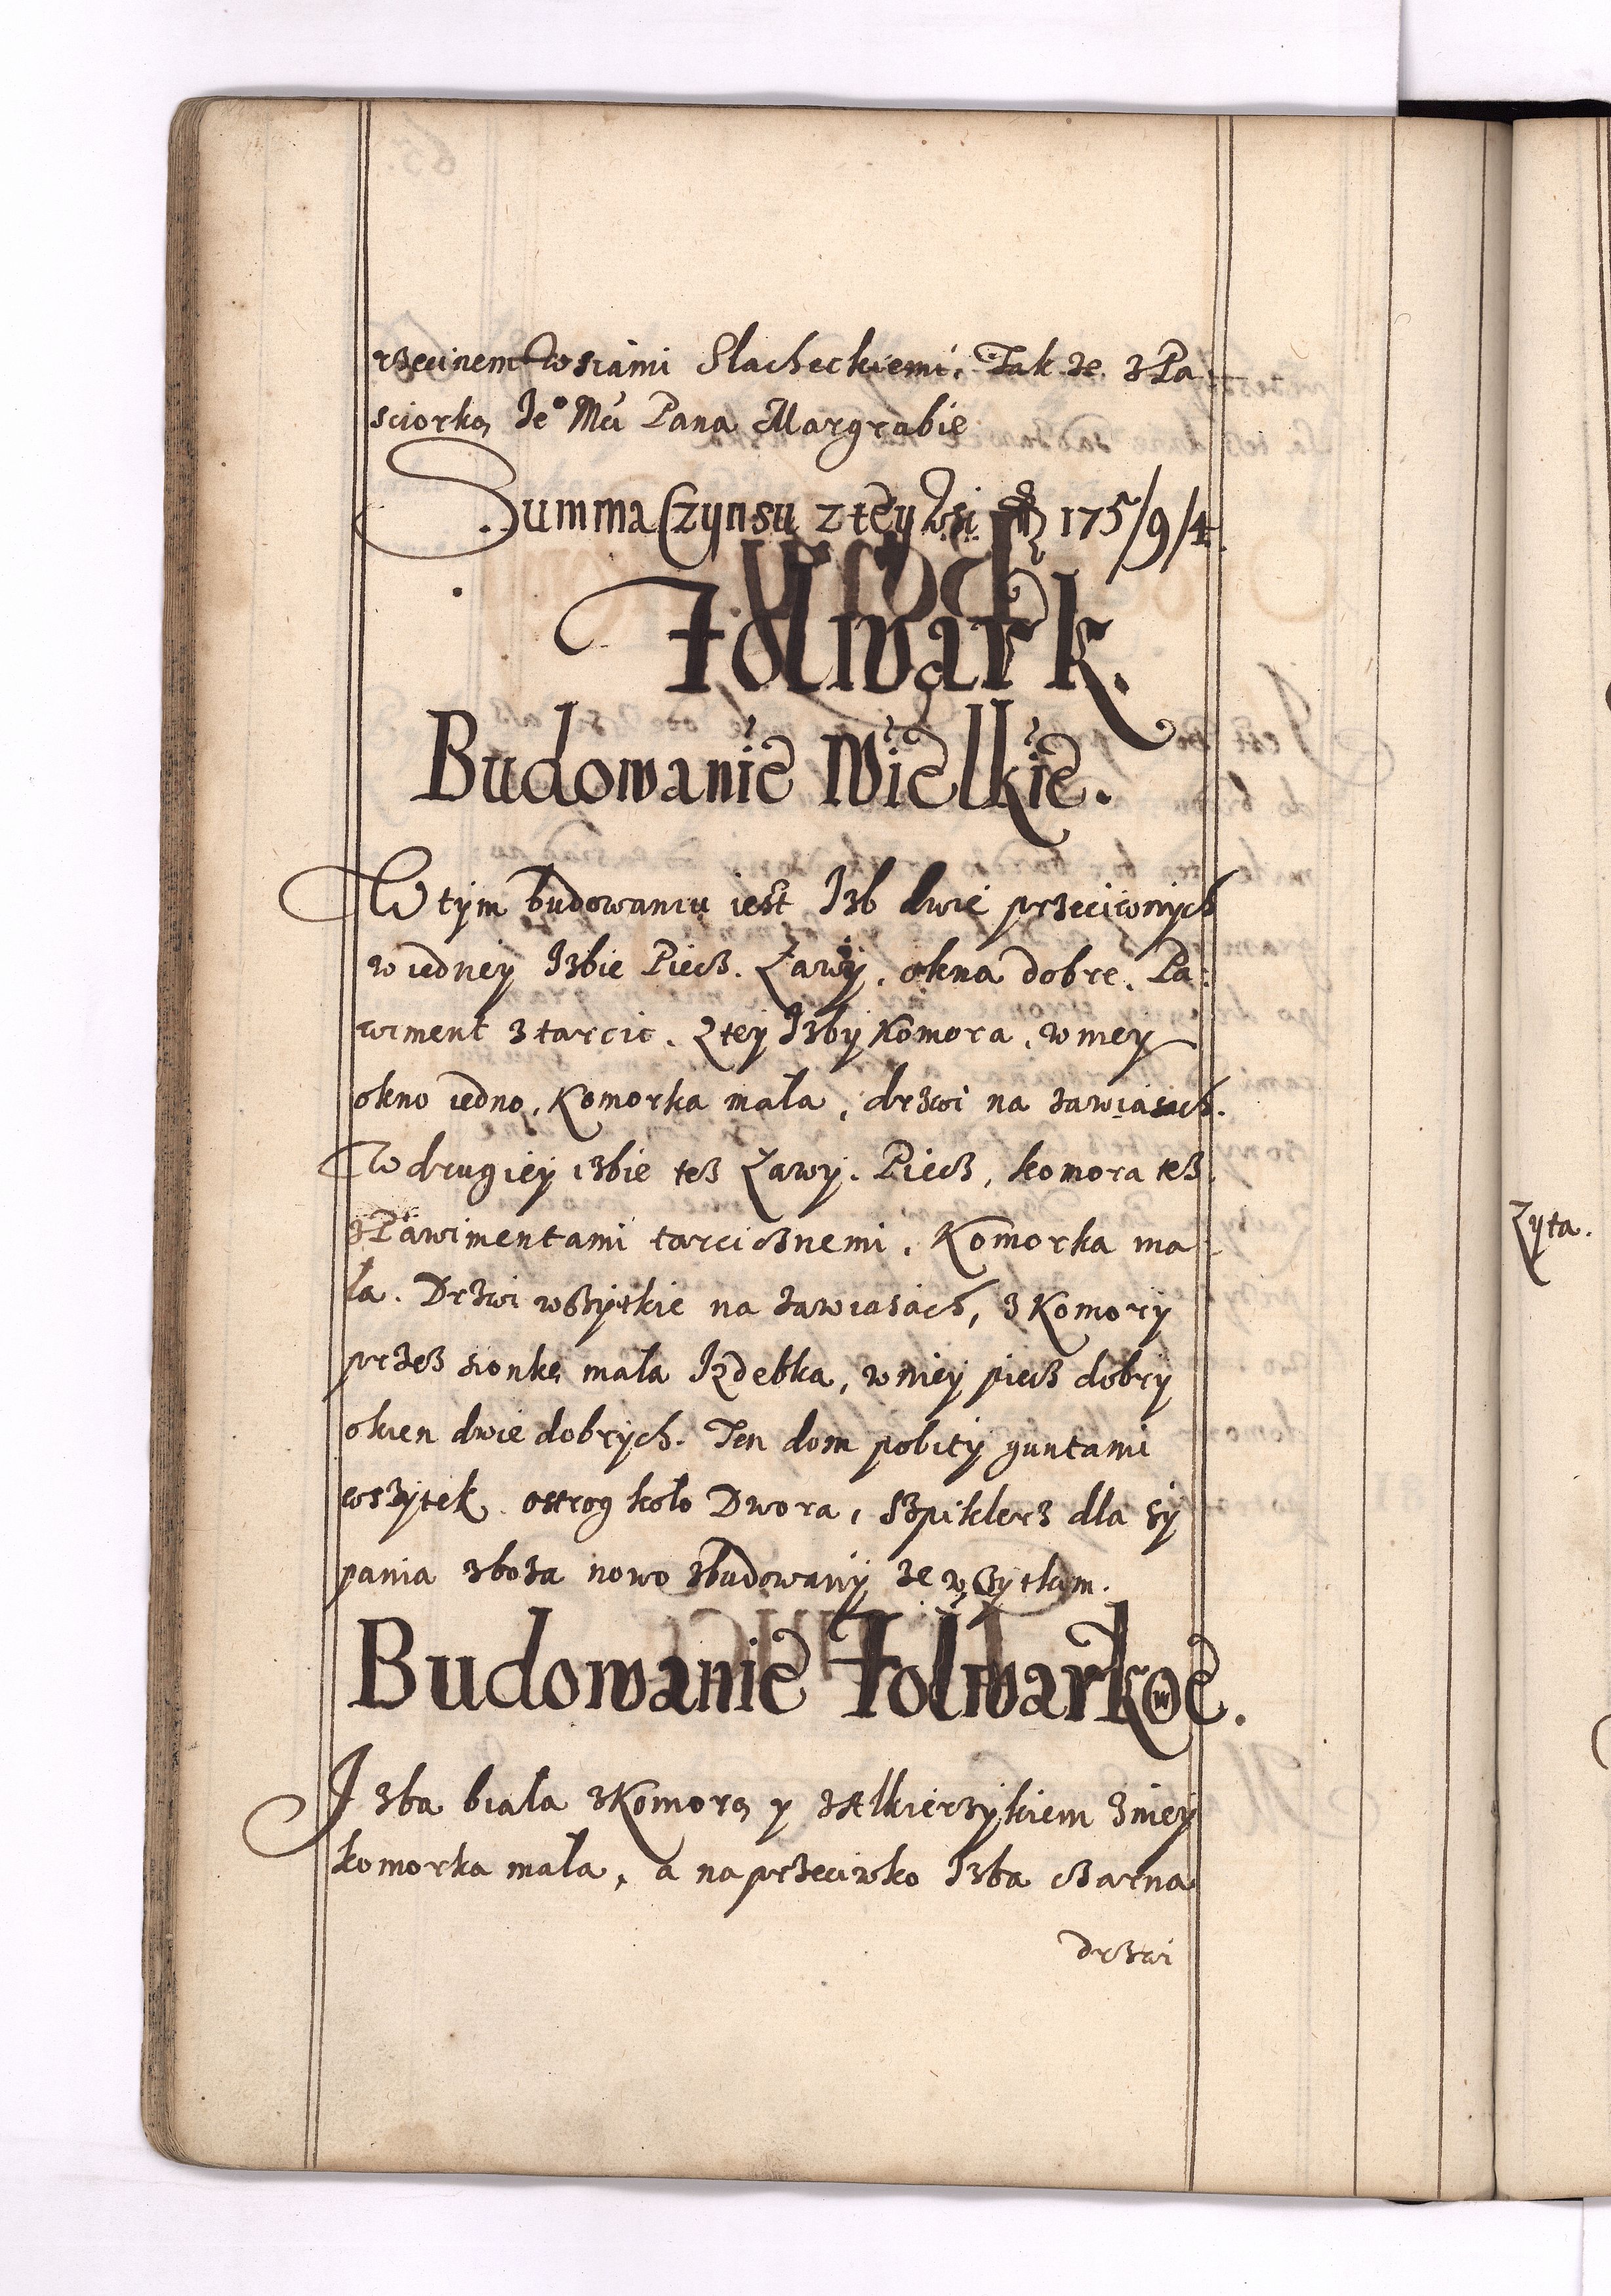 rzecinem wsiami Slacheckiemi, Tak ze z Pa
sciorką Je° Mći Pana Margrabie
Summa Czynsu z tey wsi 175/9/4.
Folwark.
Budowanie Wielkie.
W tym budowaniu iest Izb dwie przeciwnych
w iedney Izbie Piecz. Ławy. okna dobre. Pa
wiment z tarcic. Z tey Izby Komora, w niey
okno iedno, Komorka mała, drzwi na zawiasach.
W drugiey izbie tesz Ławy. Piecz, komora tesz
z Pawimentami tarcicznemi. Komorka ma
ła. Drzwi wszytkie na zawiasach, z Komory
przesz sionkę mała Izdebka, w niey piecz dobry
okien dwie dobrych. Ten dom pobity guntami
wszytek. ostrog koło Dwora, Szpiklerz dla sy
pania zboza nowo zbudowany ze wszytkim.
Budowanie Folwarkowe.
Izba biała z Komorą y z Alkierzykiem z niey
komorka mała, a naprzeciwko Izba czarna
drzwi
Zyta.